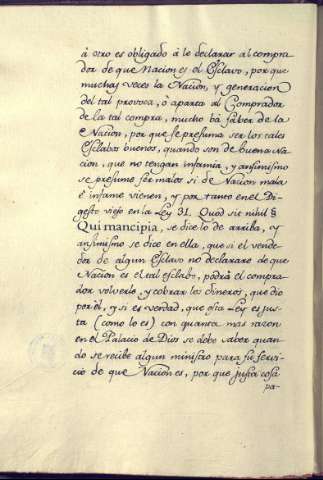 á otro es obligado á le declarar al compra-
dor de que Nacion es el Esclavo, por que
muchas veces la Nacion, y generacion
del tal provoca, ó aparta al Comprador
de la tal compra, mucho bá saber de la
Nacion, por que se presuma ser los tales
Esclabos buenos, quando son de buena Na
cion, que no tengan infamia, y ansimismo
se presume ser malos si de Nacion mala
é infame vienen, y por tanto en el Di-
gesto viejo en la Ley 31. Quod sit nihil §
Qui mancipia, se dice lo de arriba, y
ansimismo se dice en ella, que si el vende-
dor de algun Esclavo no declarare de que
Nacion es el tal esclabo, podrá el compra-
dor volverlo, y cobrar los dineros, que dio
por él, y si es verdad, que esta Ley es jus-
ta (como lo es) con quanta mas razon
en el Palacio de Dios se debe saber quan-
do se recibe algun ministro para su servi-
cio de que Nacion es, por que justa cosa
pa-